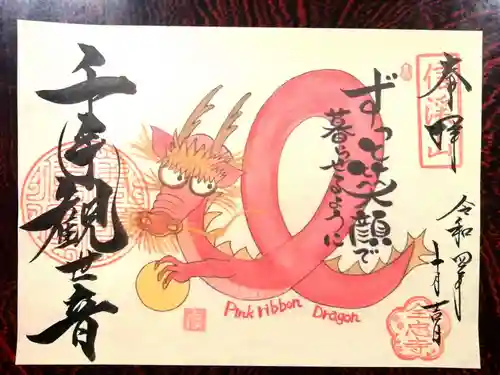 奉拝
信淨山
令和四年
十月吉日
ずっと笑顔で
暮らせるように
Pink ribbon Dragon
千手観世音